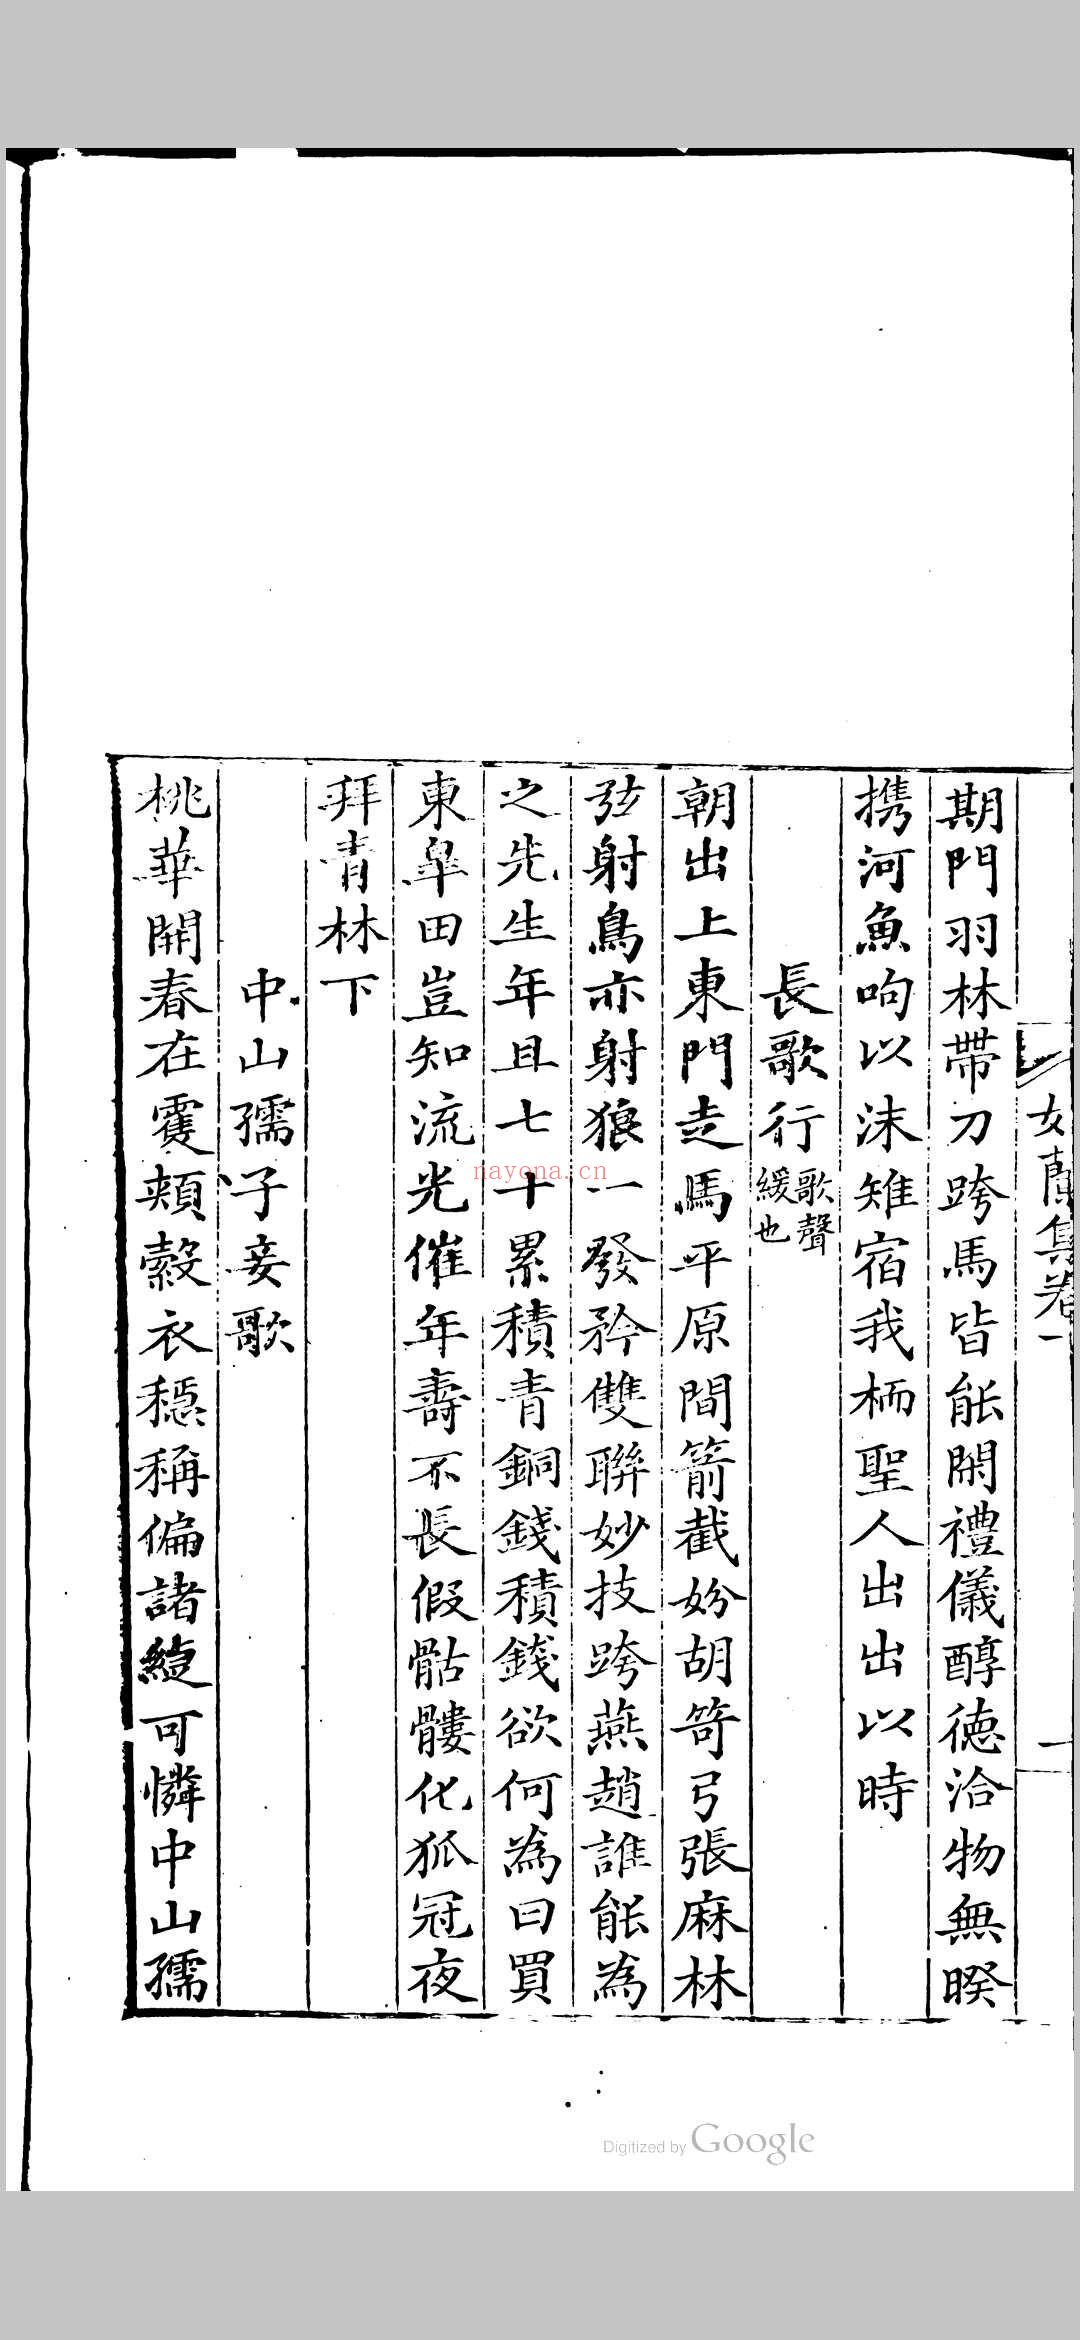 期門羽林帶刀跨馬皆能閑禮儀醇徳洽物無暌
攜河魚呴以沫雉宿我栭聖人出出以時
長歌行歌聲緩也
朝出上東門走馬平原間箭截妢胡笴弓張麻林
弦射鳥亦射狼一發矜雙聯妙技跨燕趙誰能為
之先生年且七十累積青銅錢積錢欲何為曰買
東臯田豈知流光催年壽不長假骷髏化狐冠夜
拜青林下
中山孺子妾歌
桃華開春在頰縠衣穩稱偏諸緁可憐中山孺
蘭集卷一
一
nayona.cn
Digitized by Google